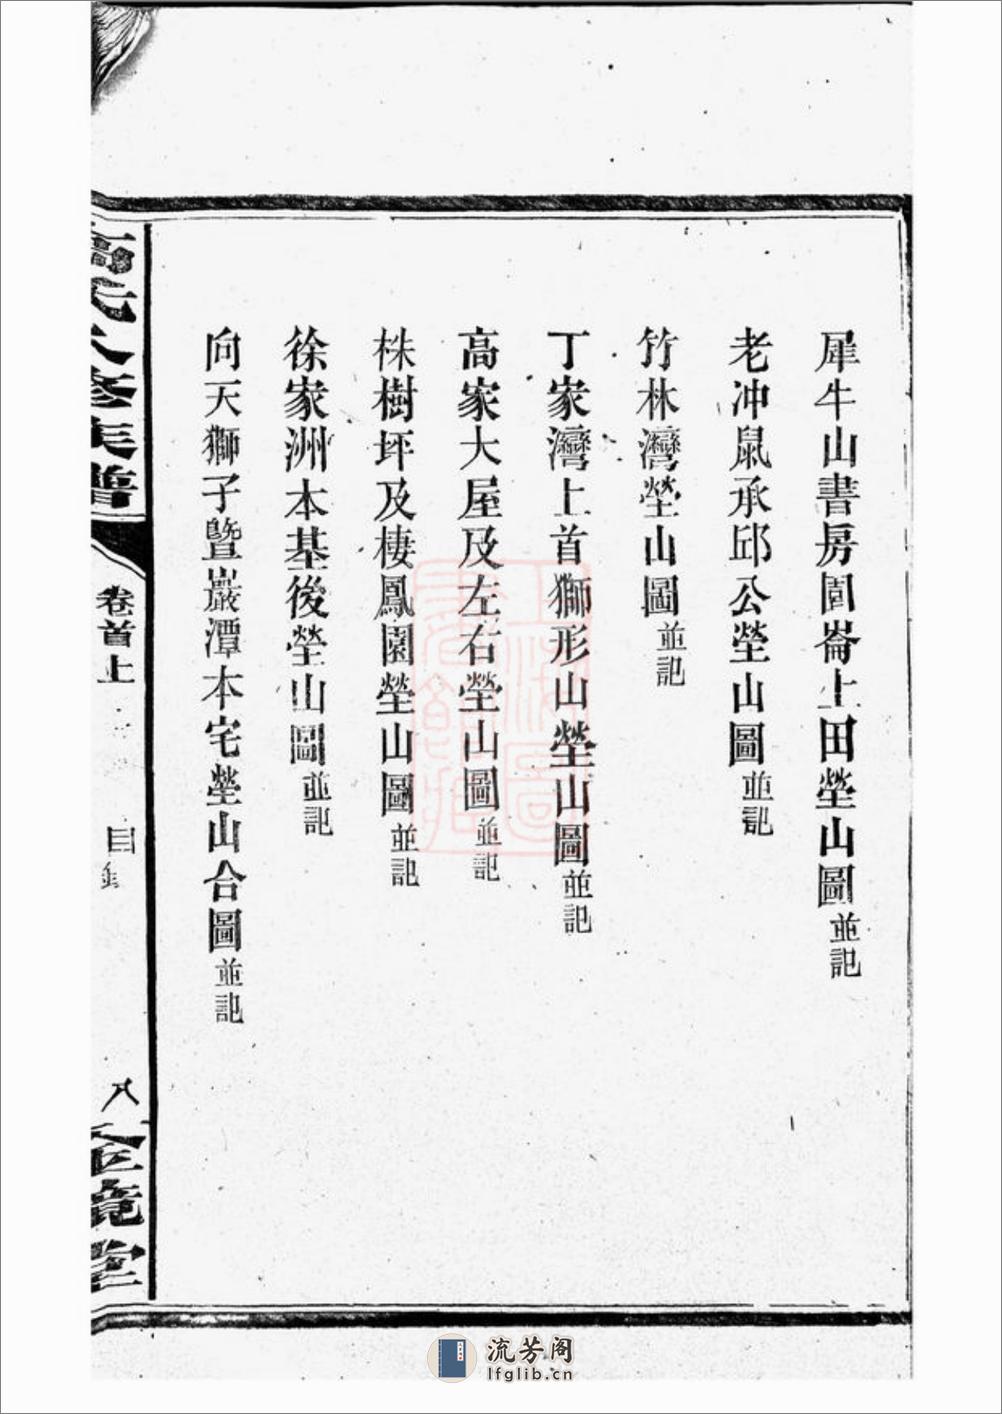 犀牛山書房園崙上田塋山圖並記
老冲鼠承邱公塋山圖並記
竹林灣塋山圖並記
丁家灣上首獅形山塋山圖並記
高家大屋及左右塋山圖並記
株樹坪及棲鳳園塋山圖並記
徐家洲本基後塋山圖並記
向天獅子暨巖潭本宅塋山合圖並記
高氏八修族譜
卷首上
目錄
八
堂
上海圖書館藏
流芳阁
lfglib.cn